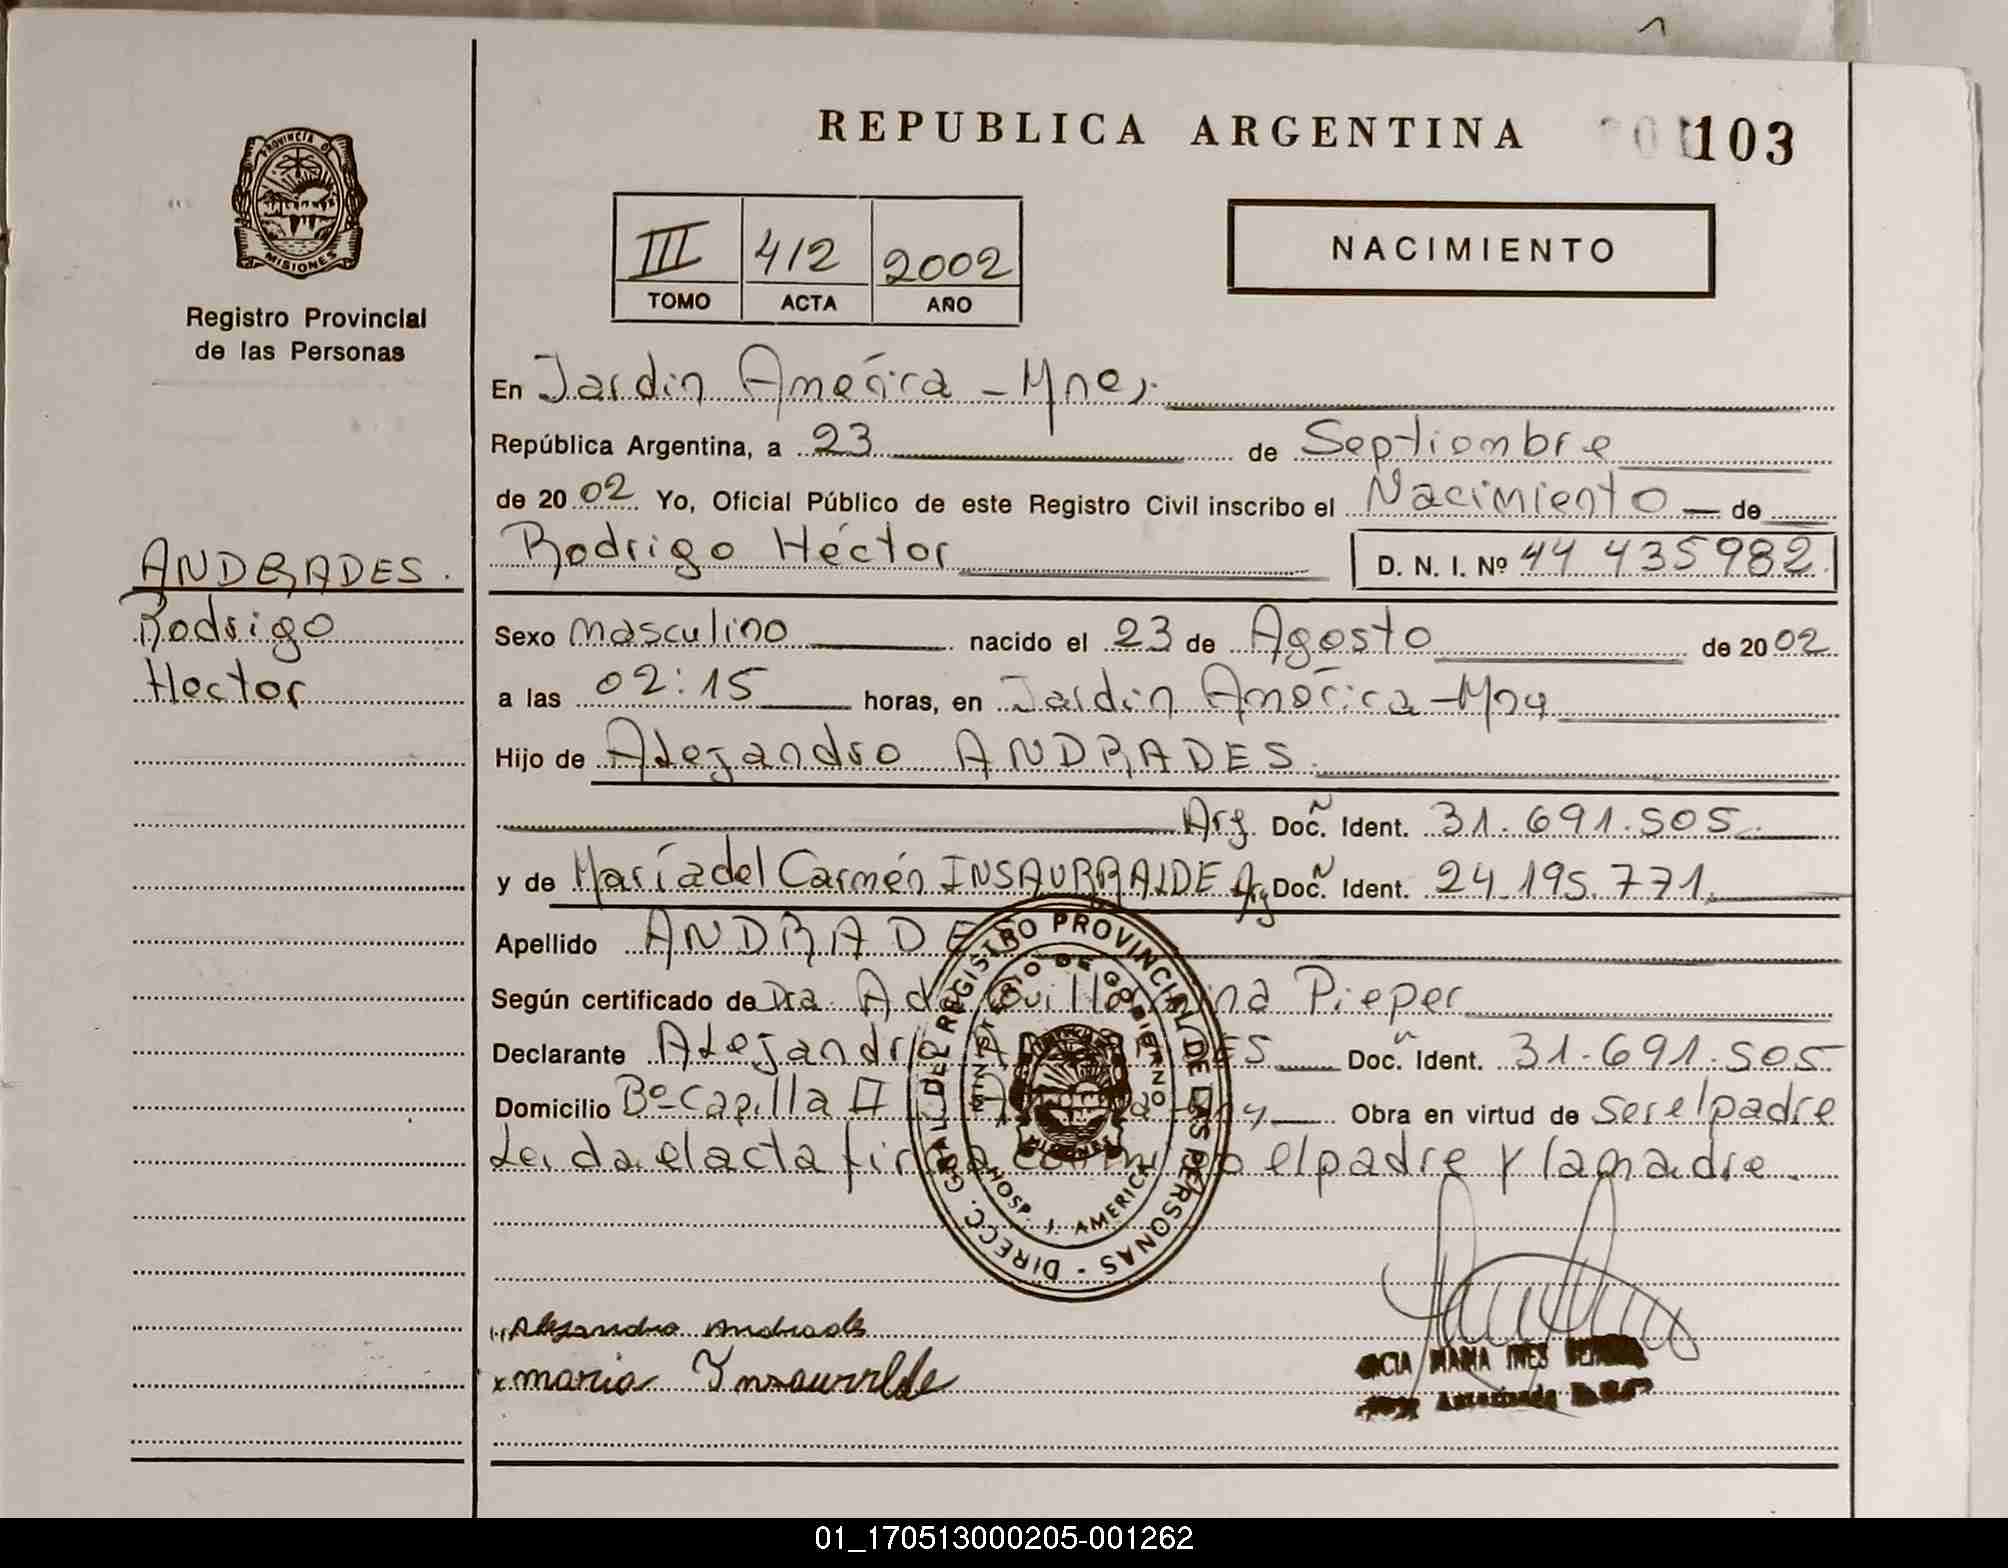 REPUBLICA ARGENTINA
103
PROVINCIA DE
MISIONES
Registro Provincial
de las Personas
III 412 2002
TOMO ACTA AÑO
NACIMIENTO
En Jardín América - Mnes.
República Argentina, a 23 de Septiembre
de 2002 Yo, Oficial Público de este Registro Civil inscribo el Nacimiento de
Rodrigo Héctor D. N. I. Nº 44 435982
ANDRADES.
Rodrigo
Hector
Sexo masculino nacido el 23 de Agosto de 2002
a las 02:15 horas, en Jardín América - Mns
Hijo de Alejandro ANDRADES.
Arg. Doc. Ident. 31.691.505
y de María del Carmén INSAURRALDE Arg Doc. Ident. 24.195.771
Apellido ANDRADES
Según certificado de Dra. Pieper
Declarante Alejandro ANDRADES Doc. Ident. 31.691.505
Domicilio Bº Capilla Obra en virtud de ser el padre
Leída el acta firma conmigo el padre y la madre.
DIRECC. GRAL. DEL REGISTRO PROVINCIAL DE LAS PERSONAS
MINISTERIO DE GOBIERNO
MISIONES
HOSP. J. AMERICA
Alejandro Andrades
x maria Ynzaurrlde
MARIA INES
Autorizada
01_170513000205-001262